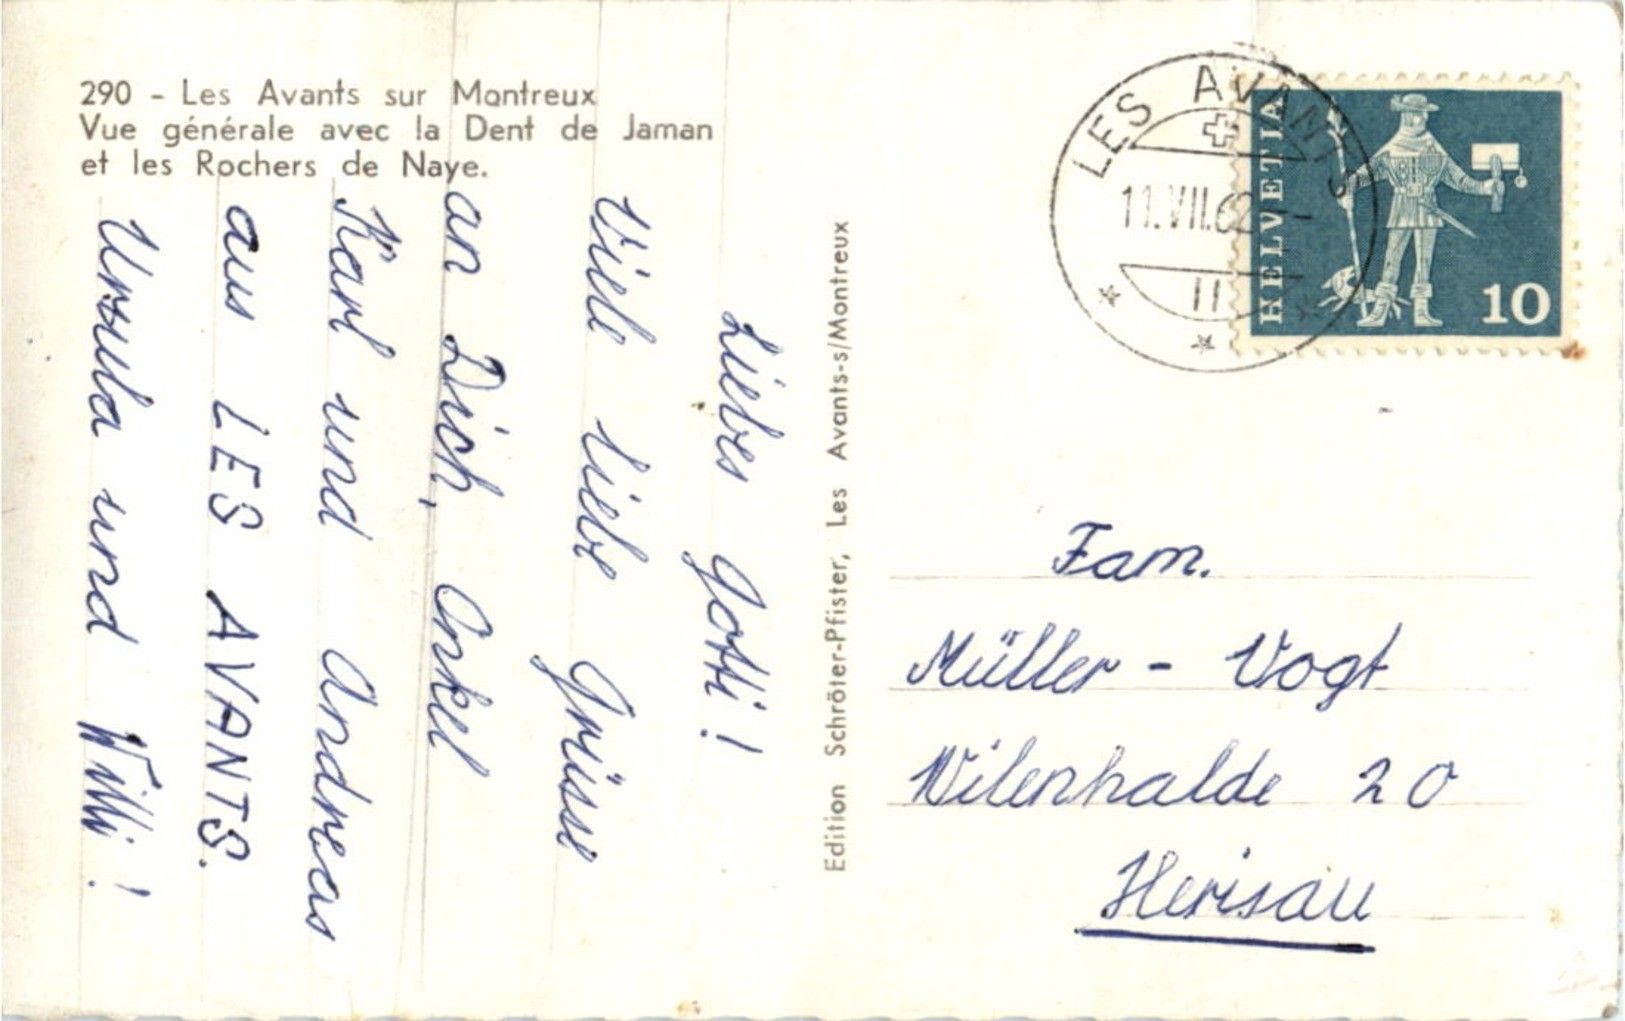 290 - Les Avants sur Montreux
Vue générale avec la Dent de Jaman
et les Rochers de Naye.
Liebes Gotti!
Viele liebe Grüsse
an Dich, Onkel
Karl und Andreas
aus LES AVANTS.
Ursula und Willi!
Edition Schröter-Pfister, Les Avants-s/Montreux
LES AVANTS
11.VII.62
HELVETIA
10
Fam.
Müller - Vogt
Wilenhalde 20
Herisau